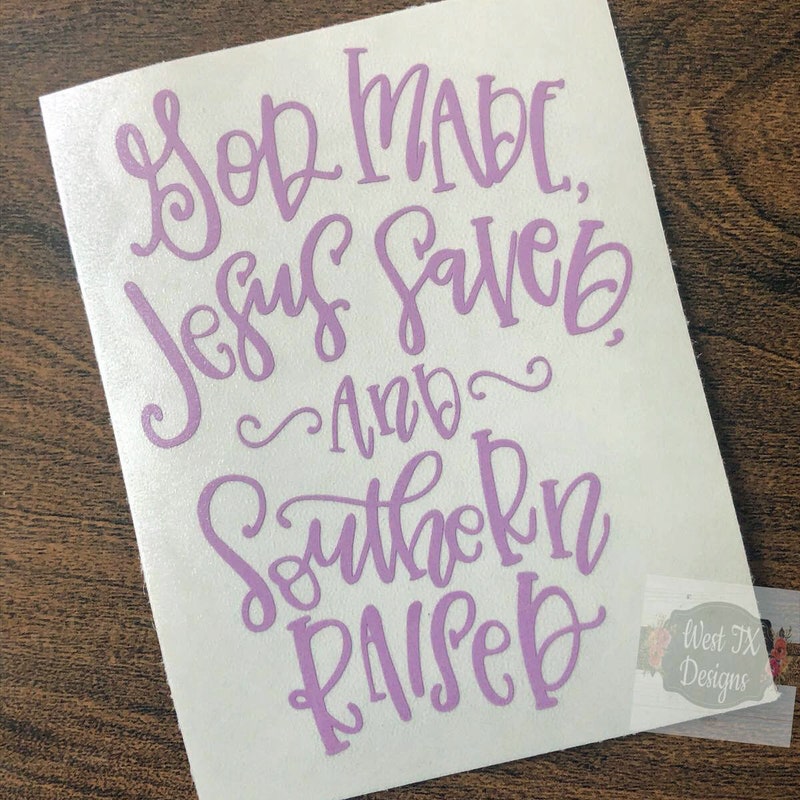 God Made,
Jesus Saved,
And
Southern
Raised
West TX
Designs